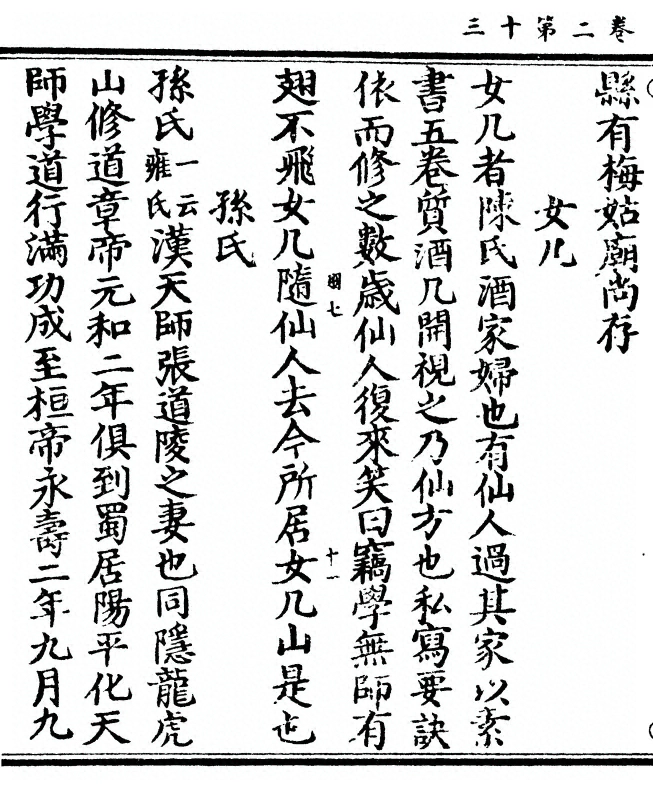 三十第二卷
縣有梅姑廟尚存
女几
女几者陳氏酒家婦也有仙人過其家以素
書五卷質酒几開視之乃仙方也私寫要訣
依而修之數歲仙人復來笑曰竊學無師有
翅不飛女几隨仙人去今所居女几山是也
國七
十一
孫氏
孫氏一云雍氏漢天師張道陵之妻也同隱龍虎
山修道章帝元和二年俱到蜀居陽平化天
師學道行滿功成至桓帝永壽二年九月九